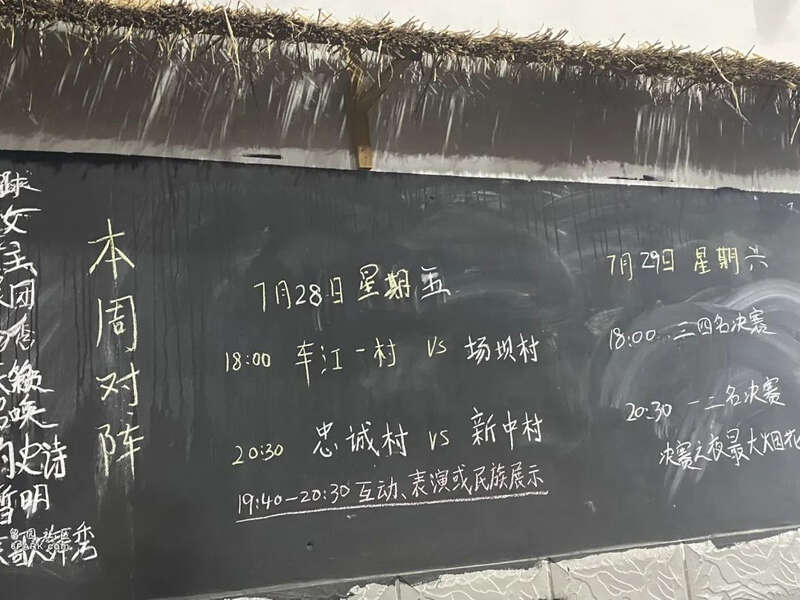 球
女
团
颖
唤
史诗
雪明
秀
本周对阵
7月28日星期五
18:00 车江一村 VS 场坝村
20:30 忠诚村 VS 新中村
19:40-20:30 互动、表演或民族展示
7月29日 星期六
18:00 三四名决赛
20:30 一二名决赛
决赛之夜最大烟花